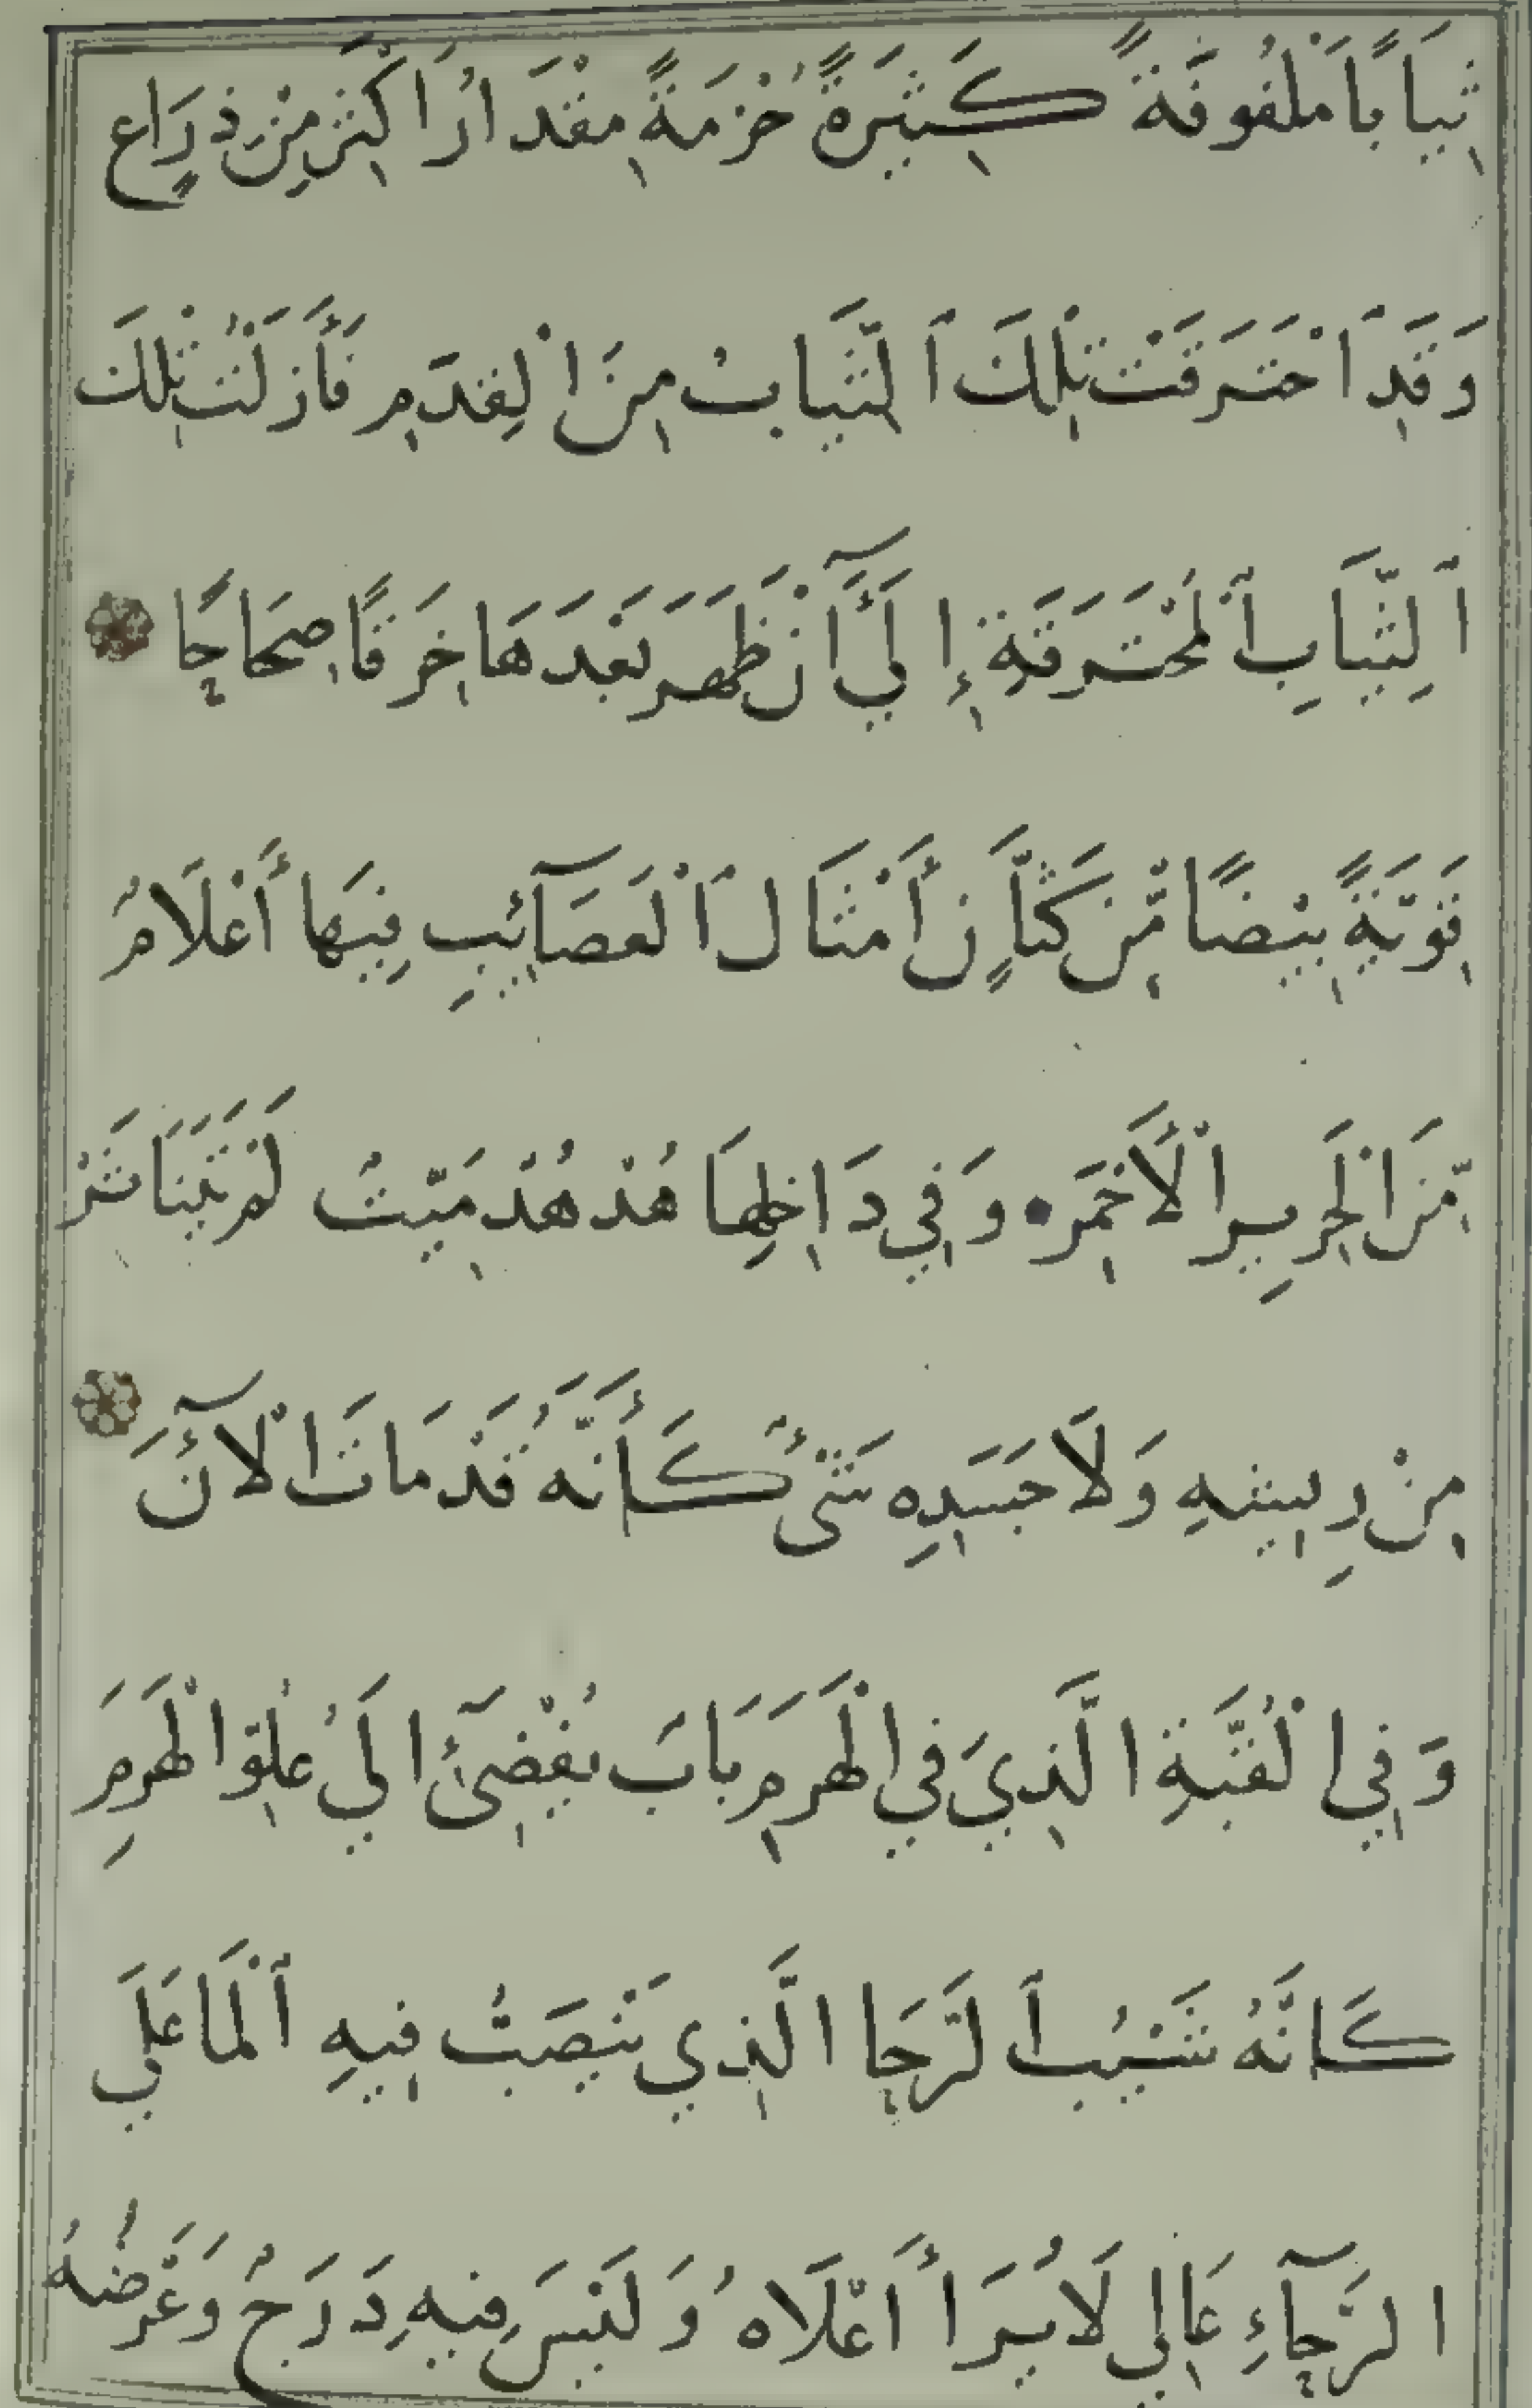 ثِيَابًا مَلْفُوفَةً كَثِيرَةً حُزْمَةً مِقْدَارُ أَكْثَرَ مِنْ ذِرَاعٍ
وَقَدِ اَحْتَرَقَتْ تِلْكَ اَلثِّيَابُ مِنَ الْقِدَمِ فَأَزَلْتُ تِلْكَ
اَلثِّيَابِ اَلْمُحْتَرَقَةِ إِلَيَّ أَنْ ظَهَرَ بَعْدَهَا خِرَقًا صِحَاحًا
قَوِيَّةً بِيْضًا مِّنْ كَتَّاٍن أَمْثَال اَلْعَصَآئِبِ فِيهَا أَعْلَامٌ
مِّنَ الْحَرِيرِ الْأَحْمَرِ وَفِي دَاخِلِهَا هُدْهُدْ مَيِّتُ لَمْ يَتَنَاثَرْ
مِنْ رِيشِهِ وَلَا جَسَدِهِ شَىْءُ كَأَنَّهُ قَدْ مَاتَ الْآنَ
وَفِي الْقُبَّةِ الَّذِيَ فِي الْهَرَمِ بَابَ يُفْضِىَٔ الَيُ عُلِوِّ الْهَرَمِ
كَاَنَّهُ شَبِيُبُ اَلرَّحَا الَّذِي يَنْصَبُّ فِيهِ اَلْمَا عَلَي
الرَّحَآءِ عَالِي لَا يُرَأ أَعْلَاهُ وَلَيْسَ فِيهِ دَرَجٌ وَعَرْضُهُ